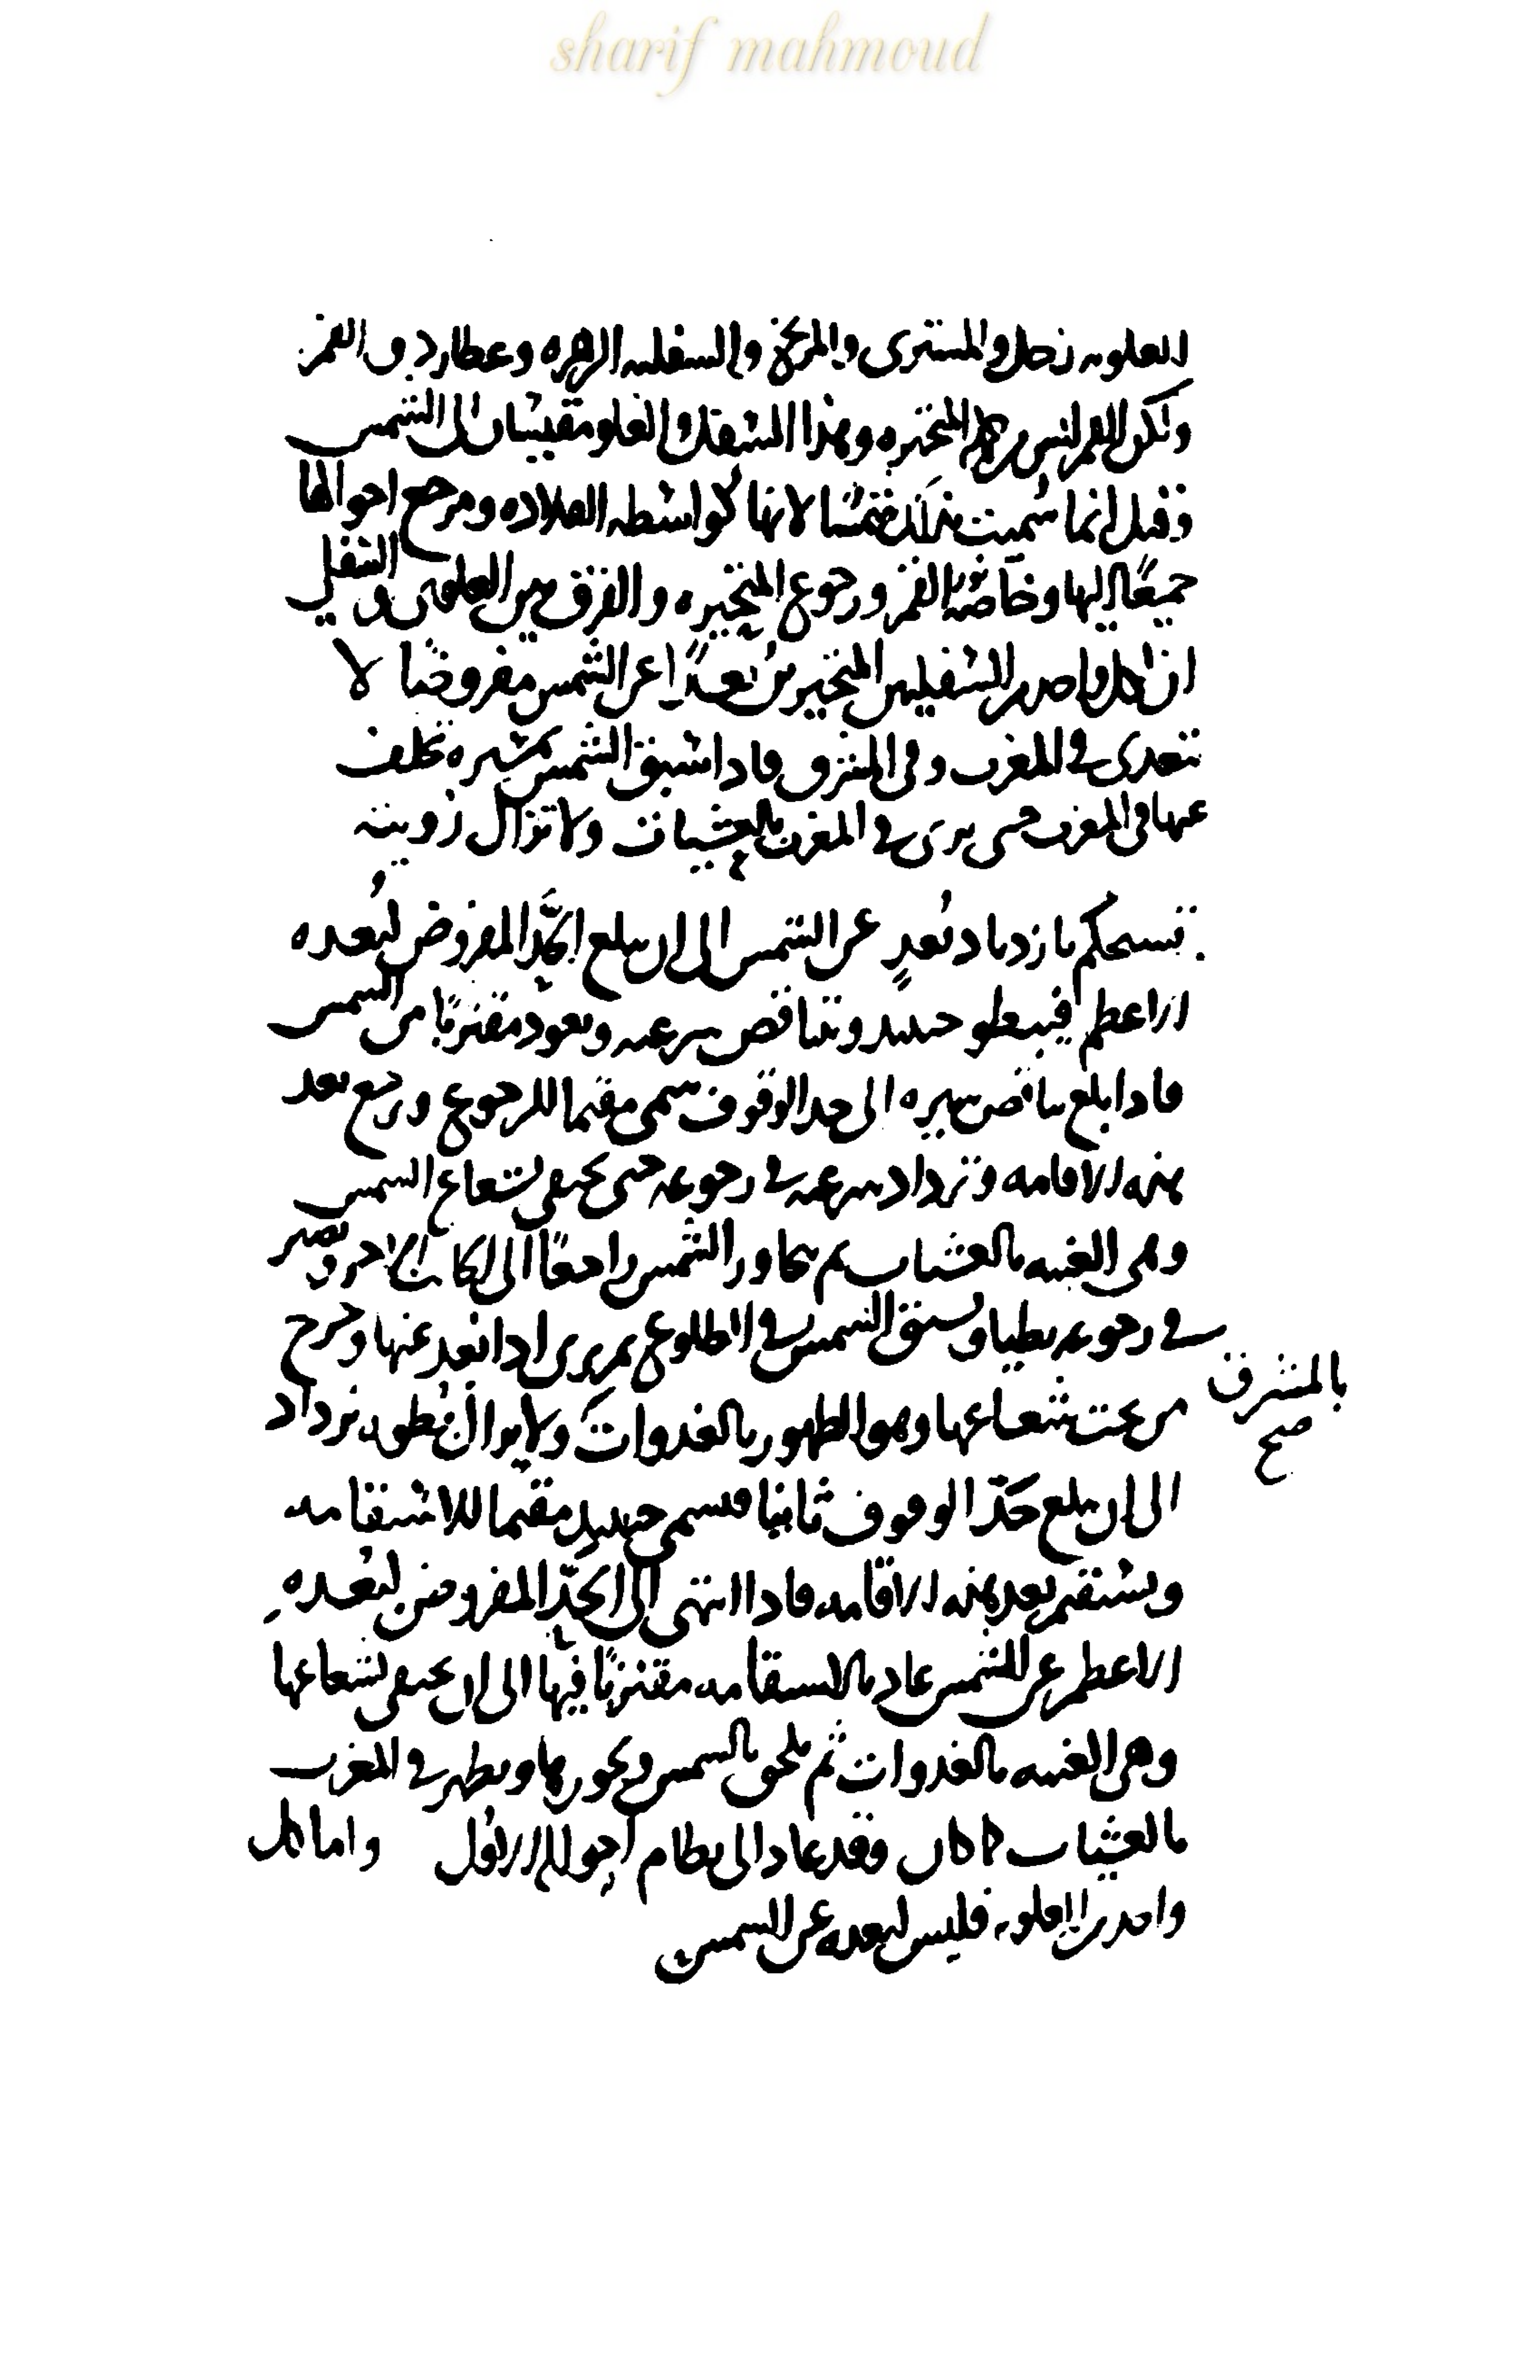 sharif mahmoud
العلويه زحل والمشترى والمريخ والسفليه الزهره وعطارد والقمر
ولكن القمر ليس من المتحيره وهذا السفل والعلو مقيسان الى الشمس
وقيل انما سميت بذلك شمسا لانها كواسطه القلاده ومرجع احوالها
جميعًا اليها وخاصّة القمر ورجوع المتحيره والفرق بين العلوى والسفلى
ان لكل واحد من السفليين المتحيرين بُعدًا عن الشمس مفروضًا لا
يتعدى فى المغرب وفى المشرق فاذا سبق الشمس بمسيره تخلف
عنها فى المغرب حتى يرى فى المغرب بالعشيات ولا تزال رؤيته
تستحكم بازدياد بُعدٍ عن الشمس الى ان يبلع الحَدّ المفروض لبُعده
الاعظم فيبطو حينئذ ويتناقص سرعته ويعود مقتربًا من الشمس
فاذا بلع تناقص سيره الى حد الوقوف سمى مقيما للرجوع ورجع بعد
هذه الاقامه وتزداد سرعته فى رجوعه حتى يختفى بشعاع الشمس
وهى الغيبه بالعشيات ثم يجاور الشمس راجعًا الى الجانب الاخر ويصير
فى رجوعه بطيا ويسبق الشمس فى الطلوع ثم يرى اذا بَعُد عنها وخرج
بالمشرق
صح
من تحت شعاعها وهو الظهور بالغدوات ولا يزال بُطوه يزداد
الى ان يبلع حَدّ الوقوف ثانيا فيسمى حينئذ مقيما للاستقامه
ويستقيم بعد هذه الاقامه فاذا انتهى الى الحَدّ المفروض لبُعده
الاعظم عن الشمس عاد بالاستقامه مقتربًا فيها الى ان يختفى بشعاعها
وهى الغيبه بالغدوات ثم يلحق بالشمس ويجوزها ويظهر فى المغرب
بالعشيات كما كان وقد عاد الى نظام احواله الاول واما كل
واحد من العلويه فليس لبعده عن الشمس